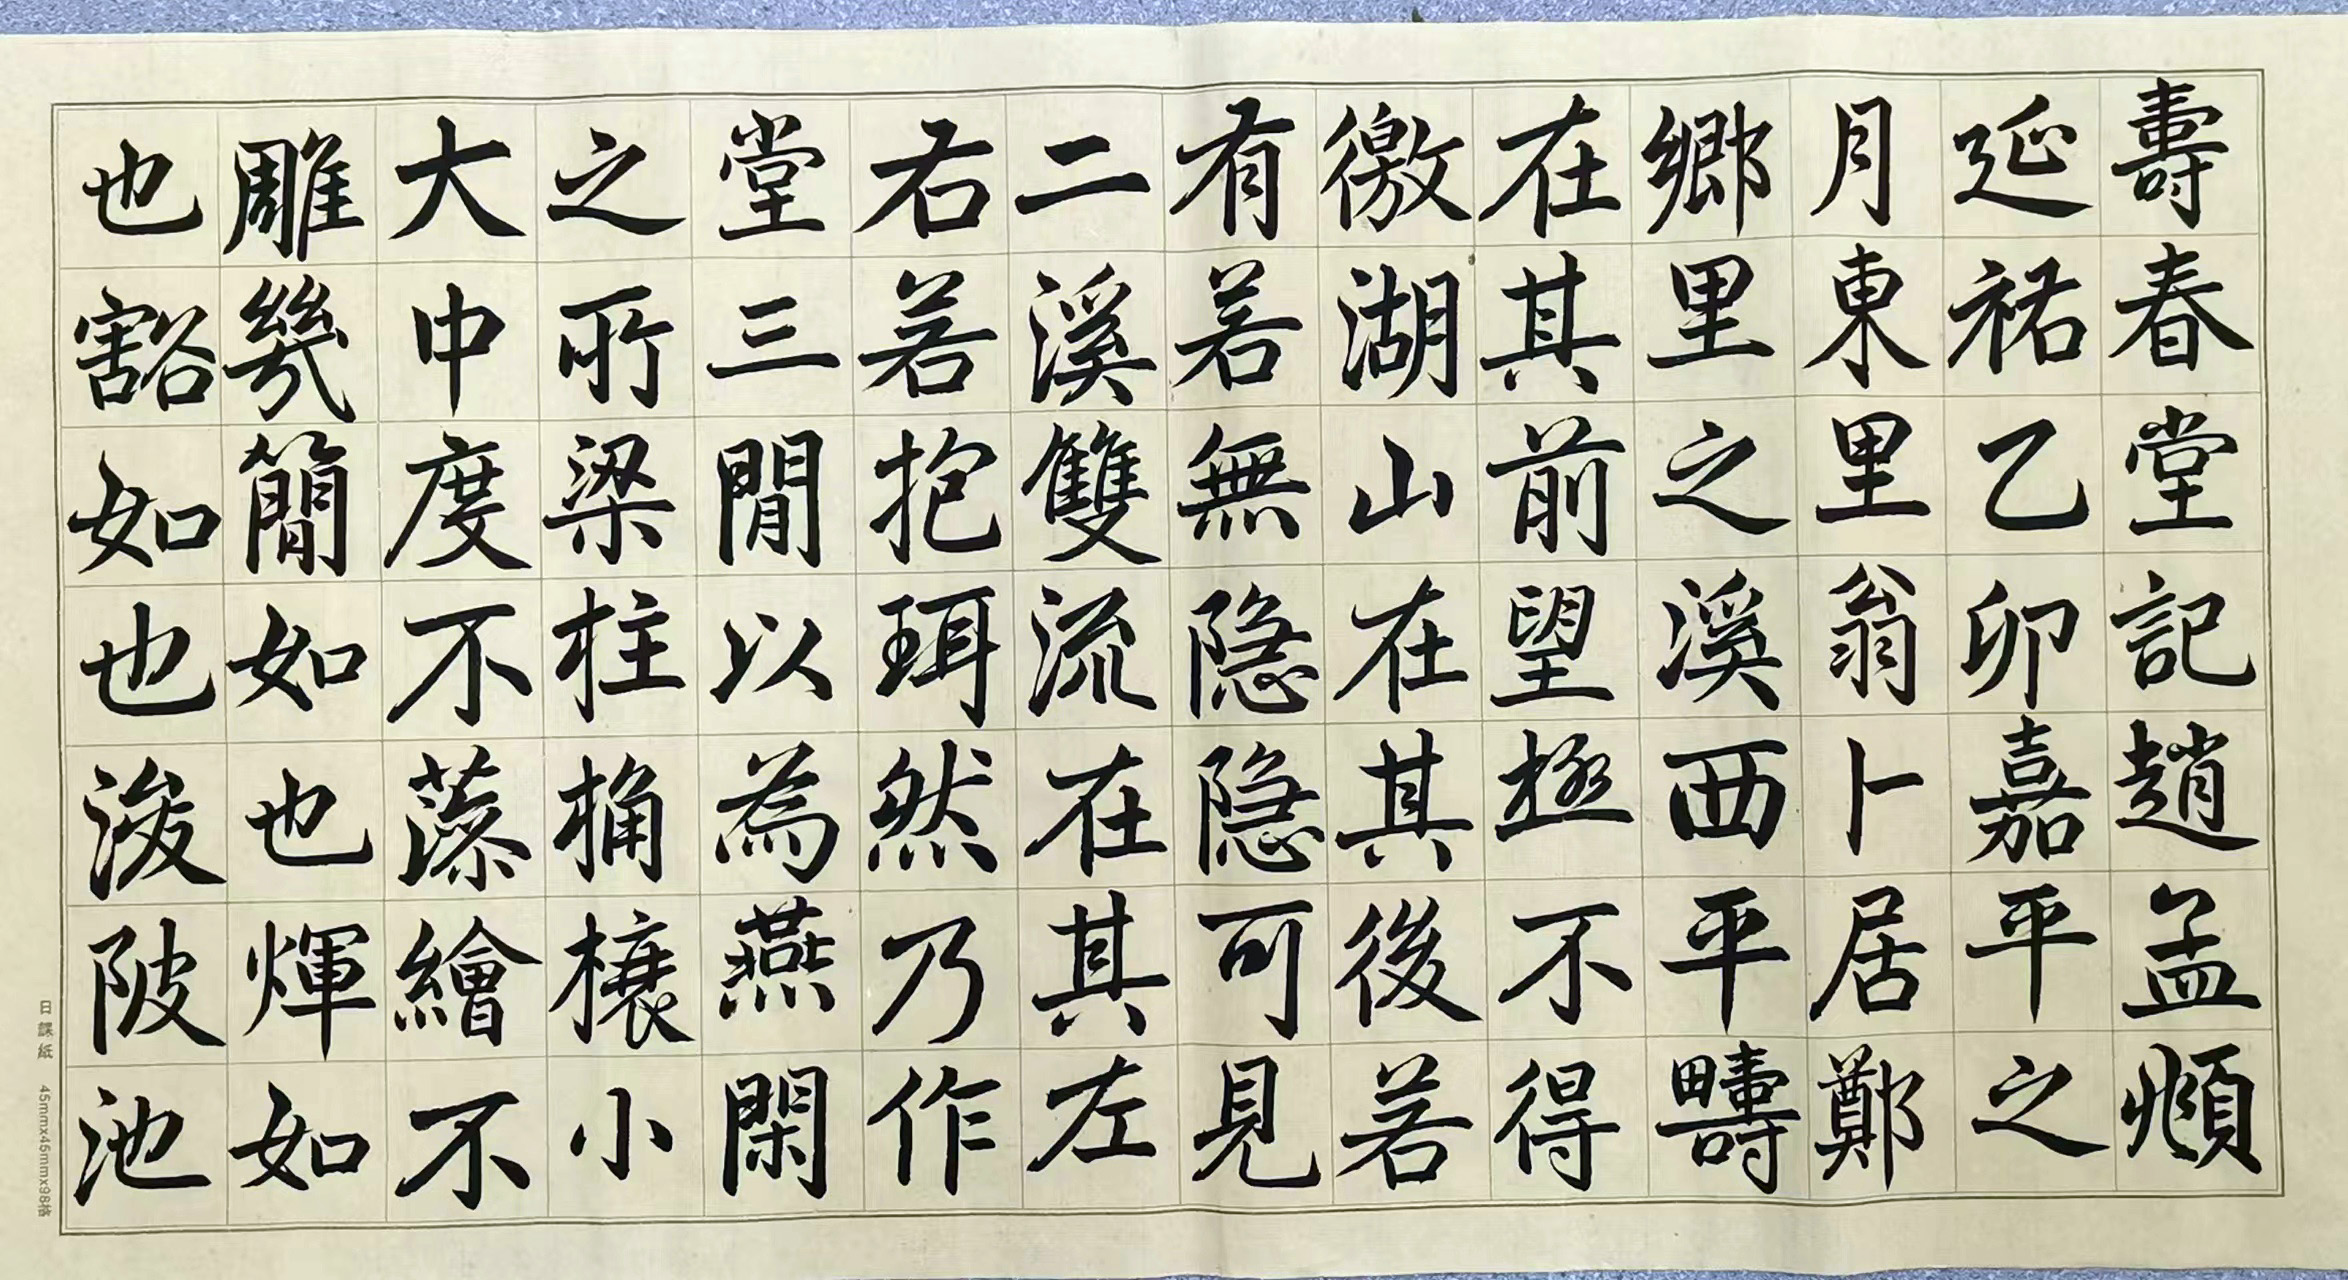 壽春堂記趙孟頫
延祐乙卯嘉平之
月東里翁卜居鄭
鄉里之溪西平疇
在其前望極不得
徼湖山在其後若
有若無隱隱可見
二溪雙流在其左
右若抱珥然乃作
堂三間以為燕閑
之所梁柱桷榱小
大中度不藻繪不
雕幾簡如也煇如
也豁如也浚陂池
日課紙 45mmx45mmx98格